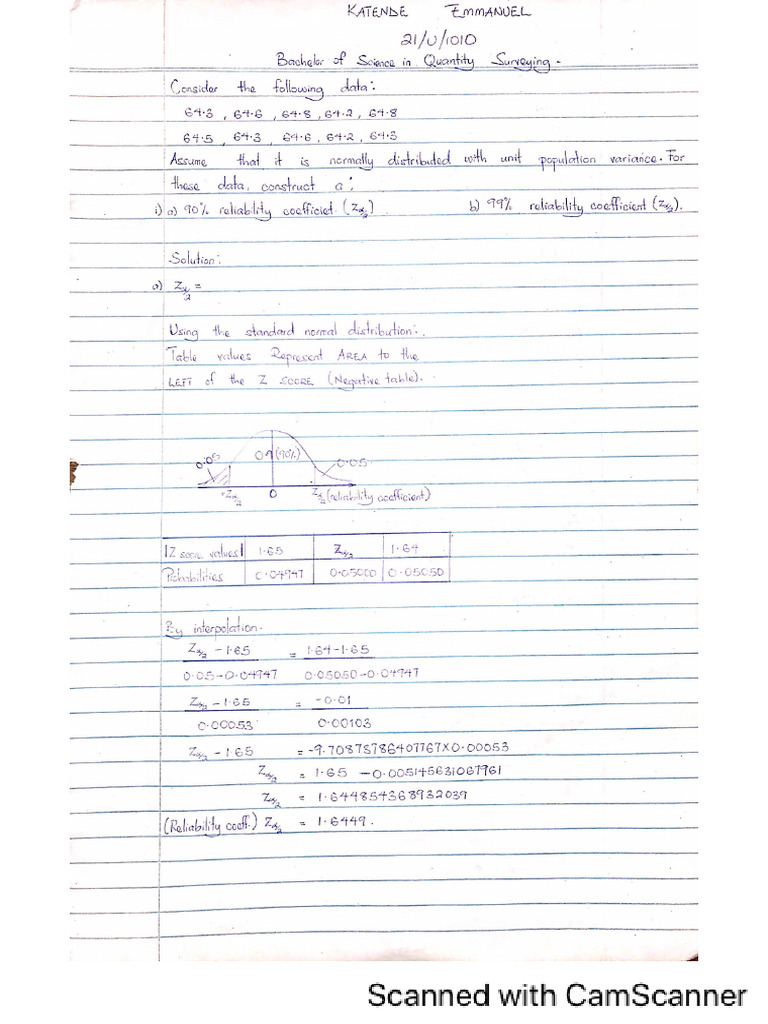 KATENDE EMMANUEL
21/U/1010
Bachelor of Science in Quantity Surveying.
Consider the following data:
64.3, 64.6, 64.8, 64.2, 64.8
64.5, 64.3, 64.6, 64.2, 64.3
Assume that it is normally distributed with unit population variance. For
these data, construct a:
i) a) 90% reliability coefficiet. (Zα/2) b) 99% reliability coefficient (Zα/2).
Solution:
a) Zα/2 =
Using the standard normal distribution:.
Table values Represent AREA to the
LEFT of the Z SCORE (Negative table).
0.05 0.9 (90%) 0.05
-Zα/2 0 Zα/2 (reliability coefficient)
|Z score values| 1.65 Zα/2 1.64
Probabilities 0.04947 0.05000 0.05050
By interpolation.
Zα/2 - 1.65 = 1.64-1.65
0.05-0.04947 0.05050-0.04947
Zα/2 - 1.65 = -0.01
0.00053 0.00103
Zα/2 - 1.65 = -9.70873786407767×0.00053
Zα/2 = 1.65 - 0.005145631067961
Zα/2 = 1.644854368932039
(Reliability coeff.) Zα/2 = 1.6449.
Scanned with CamScanner